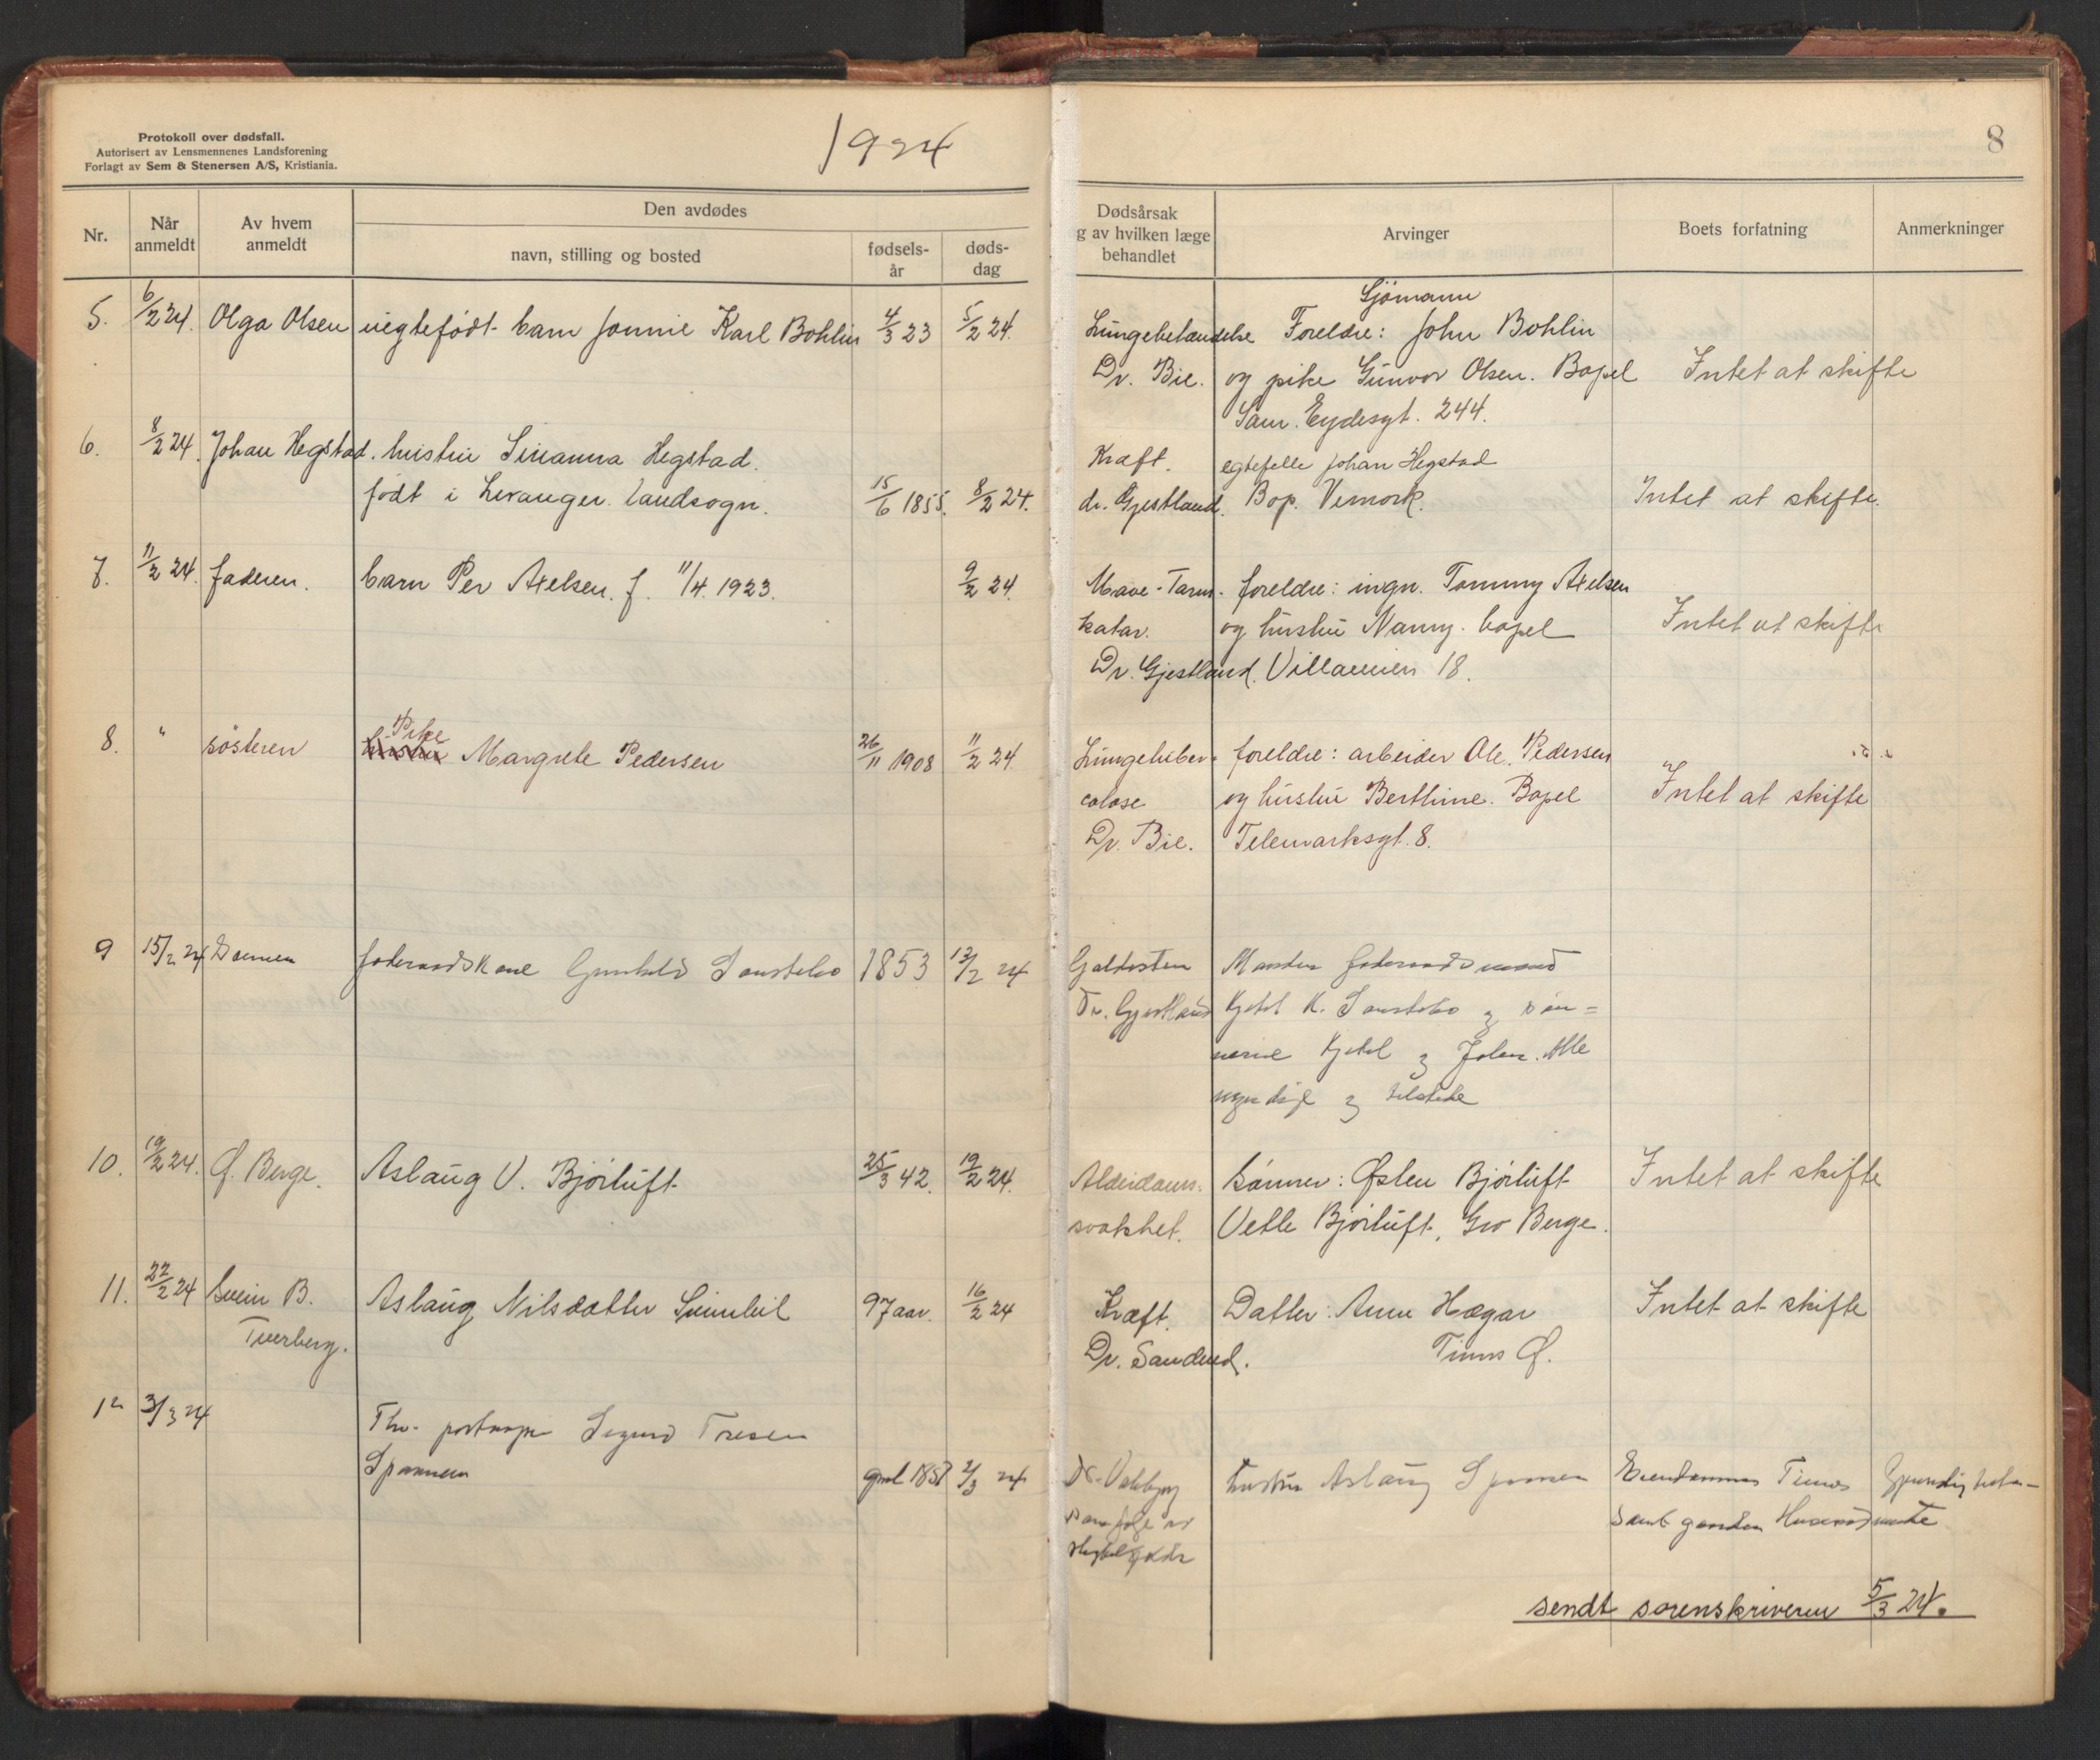 Protokoll over dødsfall.
Autorisert av Lensmennenes Landsforening
Forlagt av Sem & Stenersen A/S, Kristiania.
1924
8
Nr.
Når anmeldt
Av hvem anmeldt
Den avdødes
navn, stilling og bosted
fødsels-
år
døds-
dag
Dødsårsak
g av hvilken læge
behandlet
Arvinger
Boets forfatning
Anmerkninger
5. 6/2 24. Olga Olsen uegtefødt barn Jonnie Karl Bohlin 4/3 23 5/2 24. Lungebetændelse Foreldre: John Bohlin
Sjömann
Dr. Bie. og pike Gunvor Olsen. Bopel Intet at skifte
Sam. Eydesgt. 244.
6. 8/2 24. Johan Hegstad. hustru Sirianna Hegstad. Kræft. egtefelle Johan Hegstad
født i Levanger landsogn. 15/6 1855. 8/2 24. dr. Gjestland. Bop. Vemork. Intet at skifte.
7. 11/2 24. faderen. barn Per Axelsen. f. 11/4. 1923. 9/2 24. Mave-Tarm- foreldre: ingn. Tommy Axelsen
katar. og hustru Nanny. bopel Intet at skifte
Dr. Gjestland. Villaveien 18.
8. " søsteren Pike
hustru Margrete Pedersen 26/11 1908 11/2 24. Lungetuber- foreldre: arbeider Ole Pedersen
colose og hustru Berthine. Bopel Intet at skifte
Dr. Bie. Telemarksgt. 8.
9 15/2 24 Sønnen foderaadskone Gunhild 1853 13/2 24 Galdesten Manden foderaadsmand
Dr. Gjestland Kjetil K. og søn=
nerne Kjetil og Alle
myndige og tilstede
10. 19/2 24. Ø. Berge. Aslaug V. Bjørtuft 25/3 42. 19/2 24. Alderdoms- sønner: Østen Bjørtuft Intet at skifte
svakhet. Vetle Bjørtuft, Gro Berge.
11. 22/2 24 Svein B. Aslaug Nilsdatter 97 aar. 16/2 24 Kræft. Datter: Anne Hægar Intet at skifte
Tverberg. Dr. Sandved. Tinns Ø.
12 3/3 24
Fhv. Sigurd
gml 1857 2/3 24 Dr. hustru Aslaug Eiendommen Tinnes
samt gaarden
sendt sorenskriveren 5/3 24.